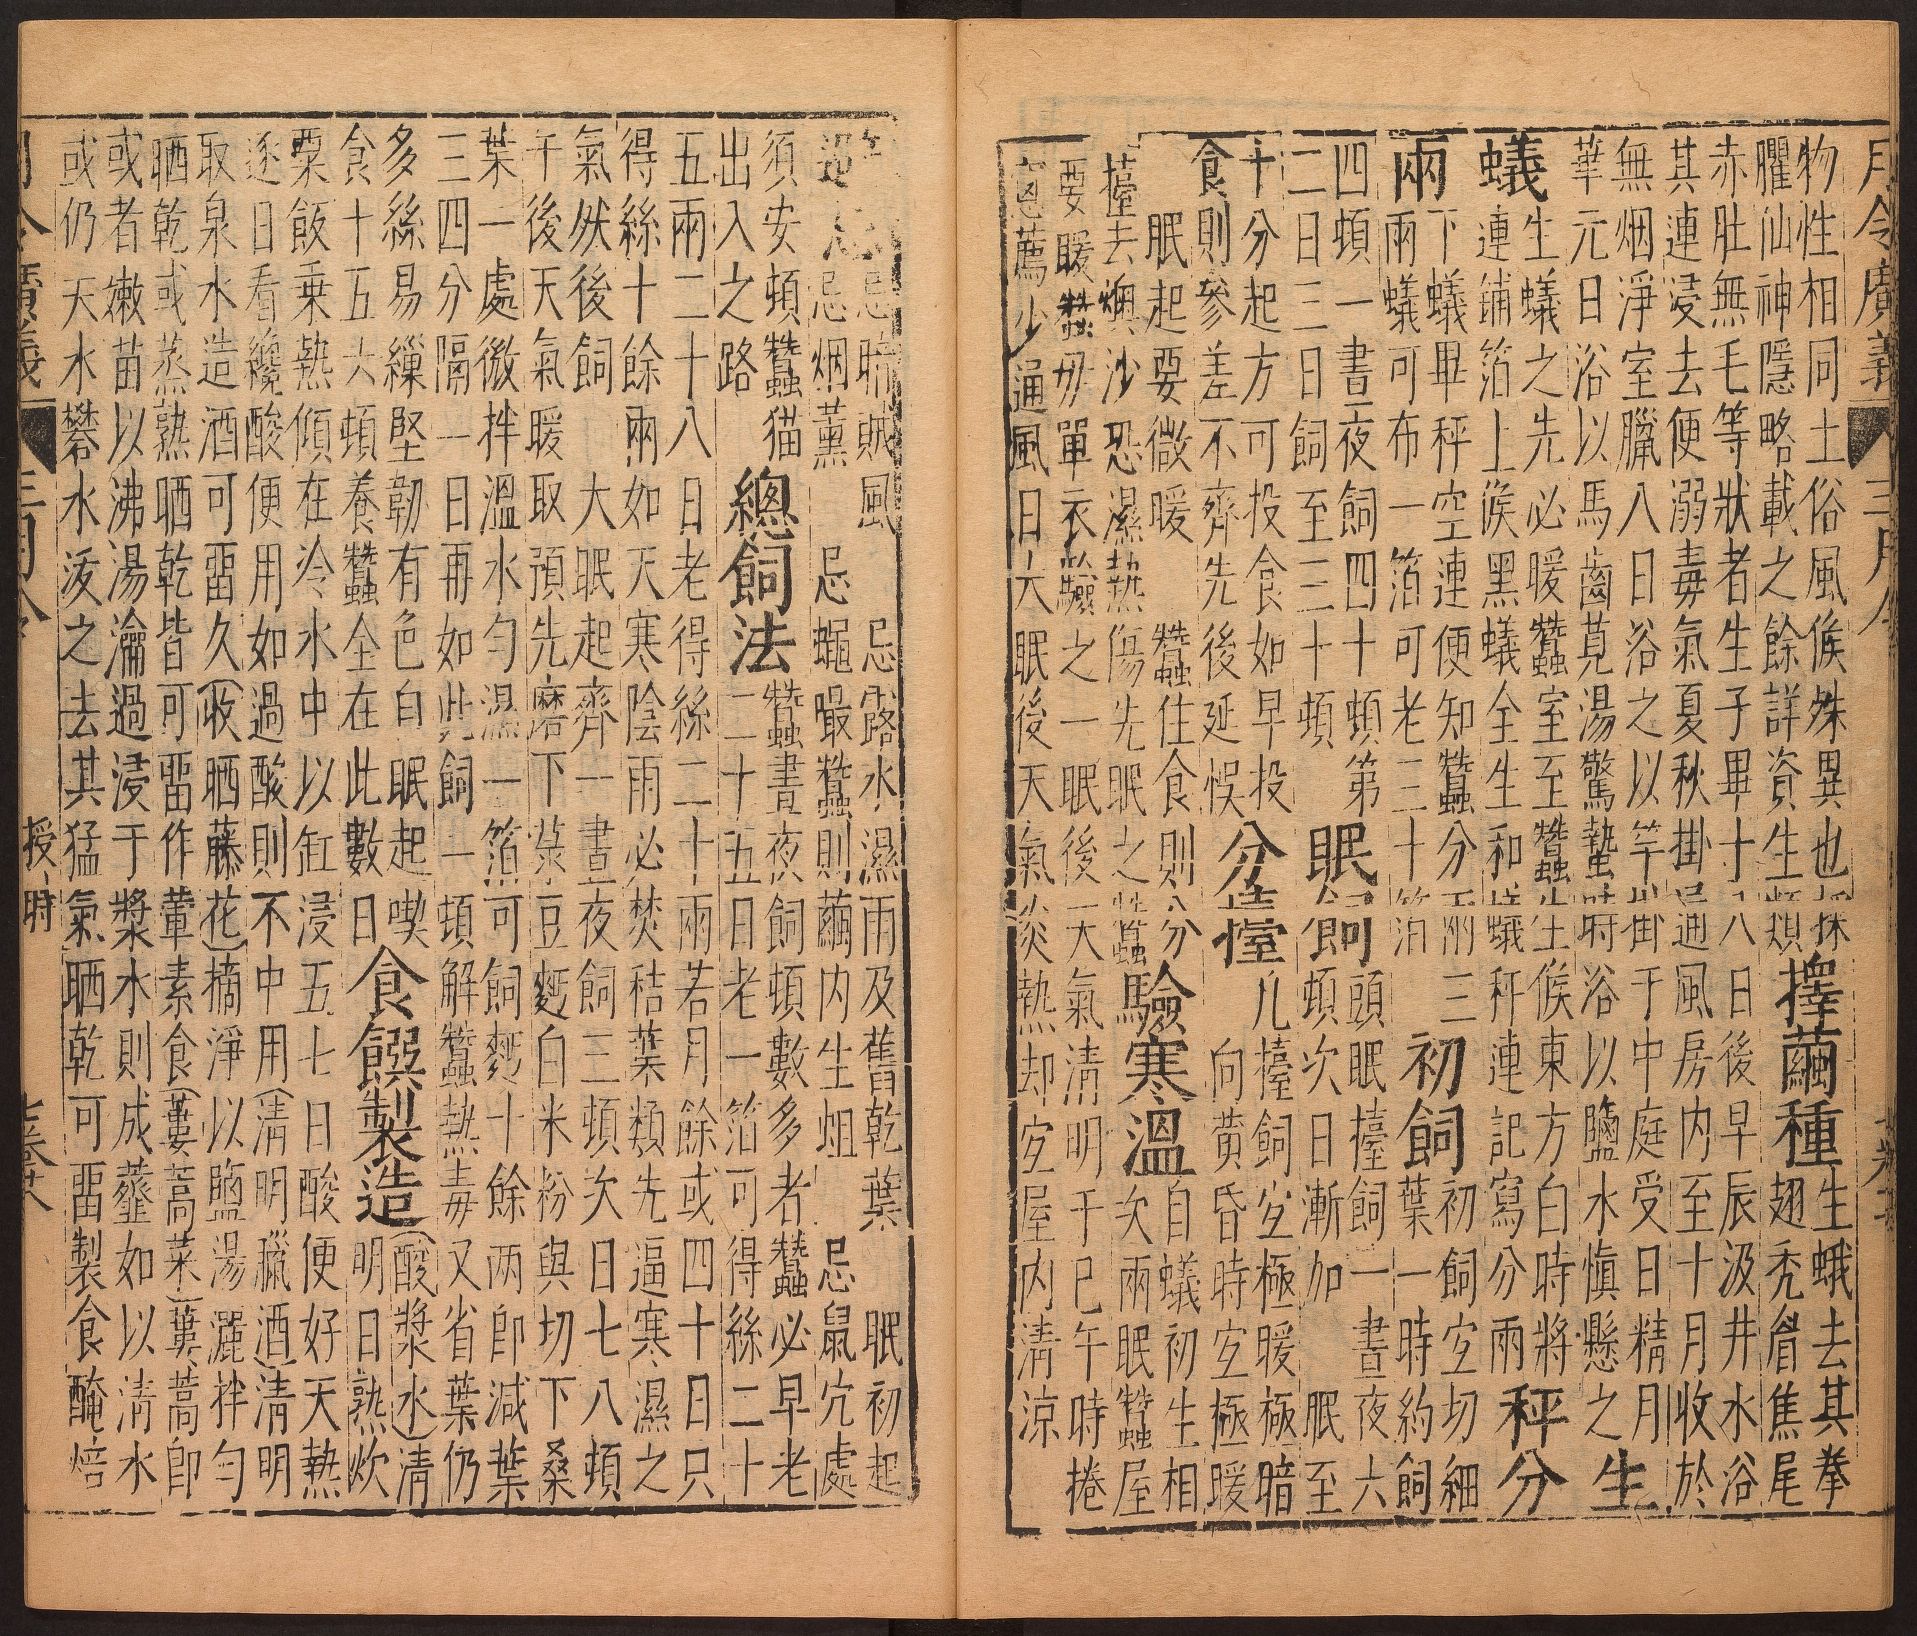 月令廣義 三月令
物性相同土俗風候殊異也採擇繭種生蛾去其拳
臞仙神隱略載之餘詳資生類翅禿眉焦尾
赤肚無毛等狀者生子畢十八日後早辰汲井水浴
其連浸去便溺毒氣夏秋掛通風房内至十月收於
無烟淨室臘八日浴之以竿掛于中庭受日精月
華元日浴以馬齒莧湯驚蟄時浴以鹽水慎懸之生
蟻生蟻之先必暖蠶室至蠶生候東方白時將
連鋪箔上候黑蟻全生和蟻秤連記寫分兩秤分
兩下蟻畢秤空連便知蠶分兩三初飼初飼宜切細
兩蟻可布一箔可老三十箔葉一時約飼
四頓一晝夜飼四十頓第眠飼頭眠擡飼一晝夜六
二日三日飼至三十頓頓次日漸加 眠至
十分起方可投食如早投分擡凡擡飼宜極暖極暗
食則參差不齊先後延悮向黃昏時宜極暖
眠起要微暖 蠶住食則分驗寒溫自蟻初生相
擡去燠沙恐濕熱傷先眠之蠶次兩眠蠶屋
要暖蠶母單衣驗之一眠後天氣清明于巳午時捲
窓薦少通風日大眠後天氣炎熱却宜屋内清涼
忌賊風 忌露水濕雨及舊乾葉 眠初起
忌烟薰 忌蠅嘬蠶則繭内生蛆 忌鼠穴處
須安頓蠶猫總飼法蠶晝夜飼頓數多者蠶必早老
出入之路二十五日老一箔可得絲二十
五兩二十八日老得絲二十兩若月餘或四十日只
得絲十餘兩如天寒陰雨必焚秸葉類先逼寒濕之
氣然後飼 大眠起齊一晝夜飼三頓次日七八頓
午後天氣暖取預先磨下菉豆麫白米粉與切下桑
葉一處微拌溫水勻濕一箔可飼麫十餘兩即減葉
三四分隔一日再如此飼一頓解蠶熱毒又省葉仍
多絲易繅堅韌有色白眠起喫食饌製造酸漿水清
食十五大頓養蠶全在此數日明日熟炊
粟飯乗熱傾在冷水中以缸浸五七日酸便好天熱
逐日看纔酸便用如過酸則不中用清明臘酒清明
取泉水造酒可畱久收晒藤花摘淨以鹽湯灑拌勻
晒乾或蒸熟晒乾皆可畱作葷素食蔞蒿菜蔞蒿即
或者嫩苗以沸湯瀹過浸于漿水則成虀如以淸水
或仍天水礬水汲之去其猛氣晒乾可畱製食醃焙
授時